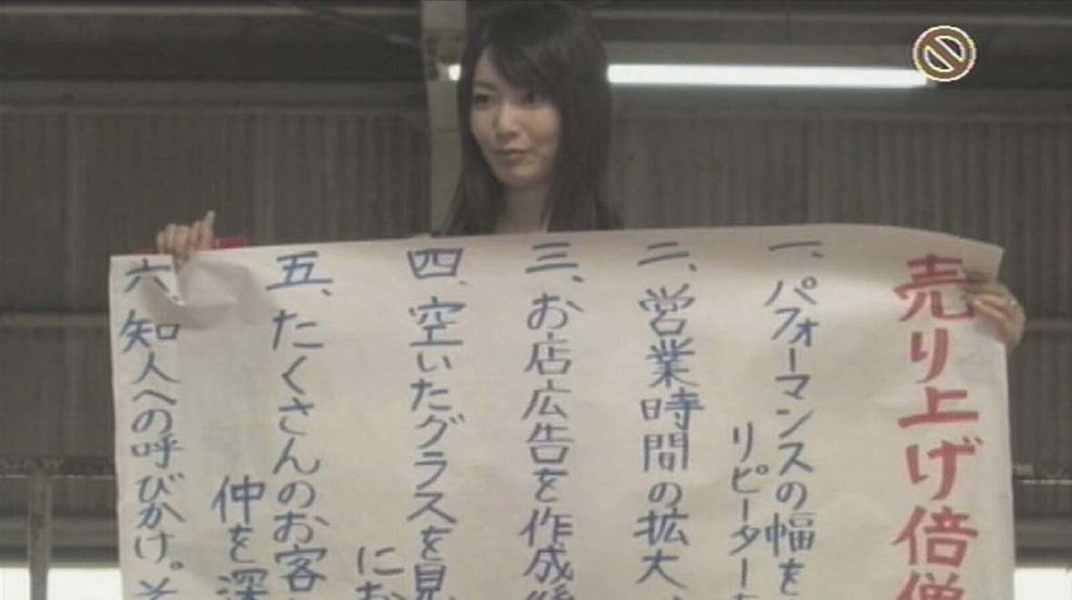 売り上げ倍増
一、パフォーマンスの幅を
リピーターを
二、営業時間の拡大、
三、お店広告を作成後
四、空いたグラスを見
にお
五、たくさんのお客
仲を深
六、知人への呼びかけ。そ